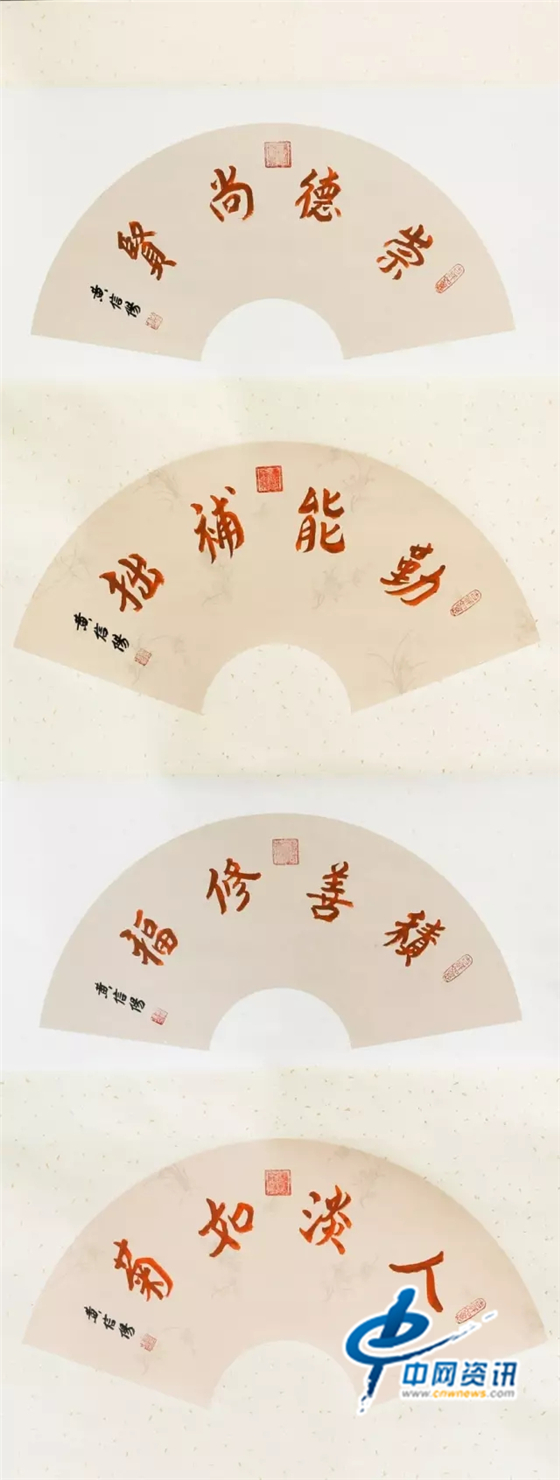 崇德尚賢
黄信陽
勤能補拙
黄信陽
積善修福
黄信陽
人淡如菊
黄信陽
中网资讯
www.cnwnews.com